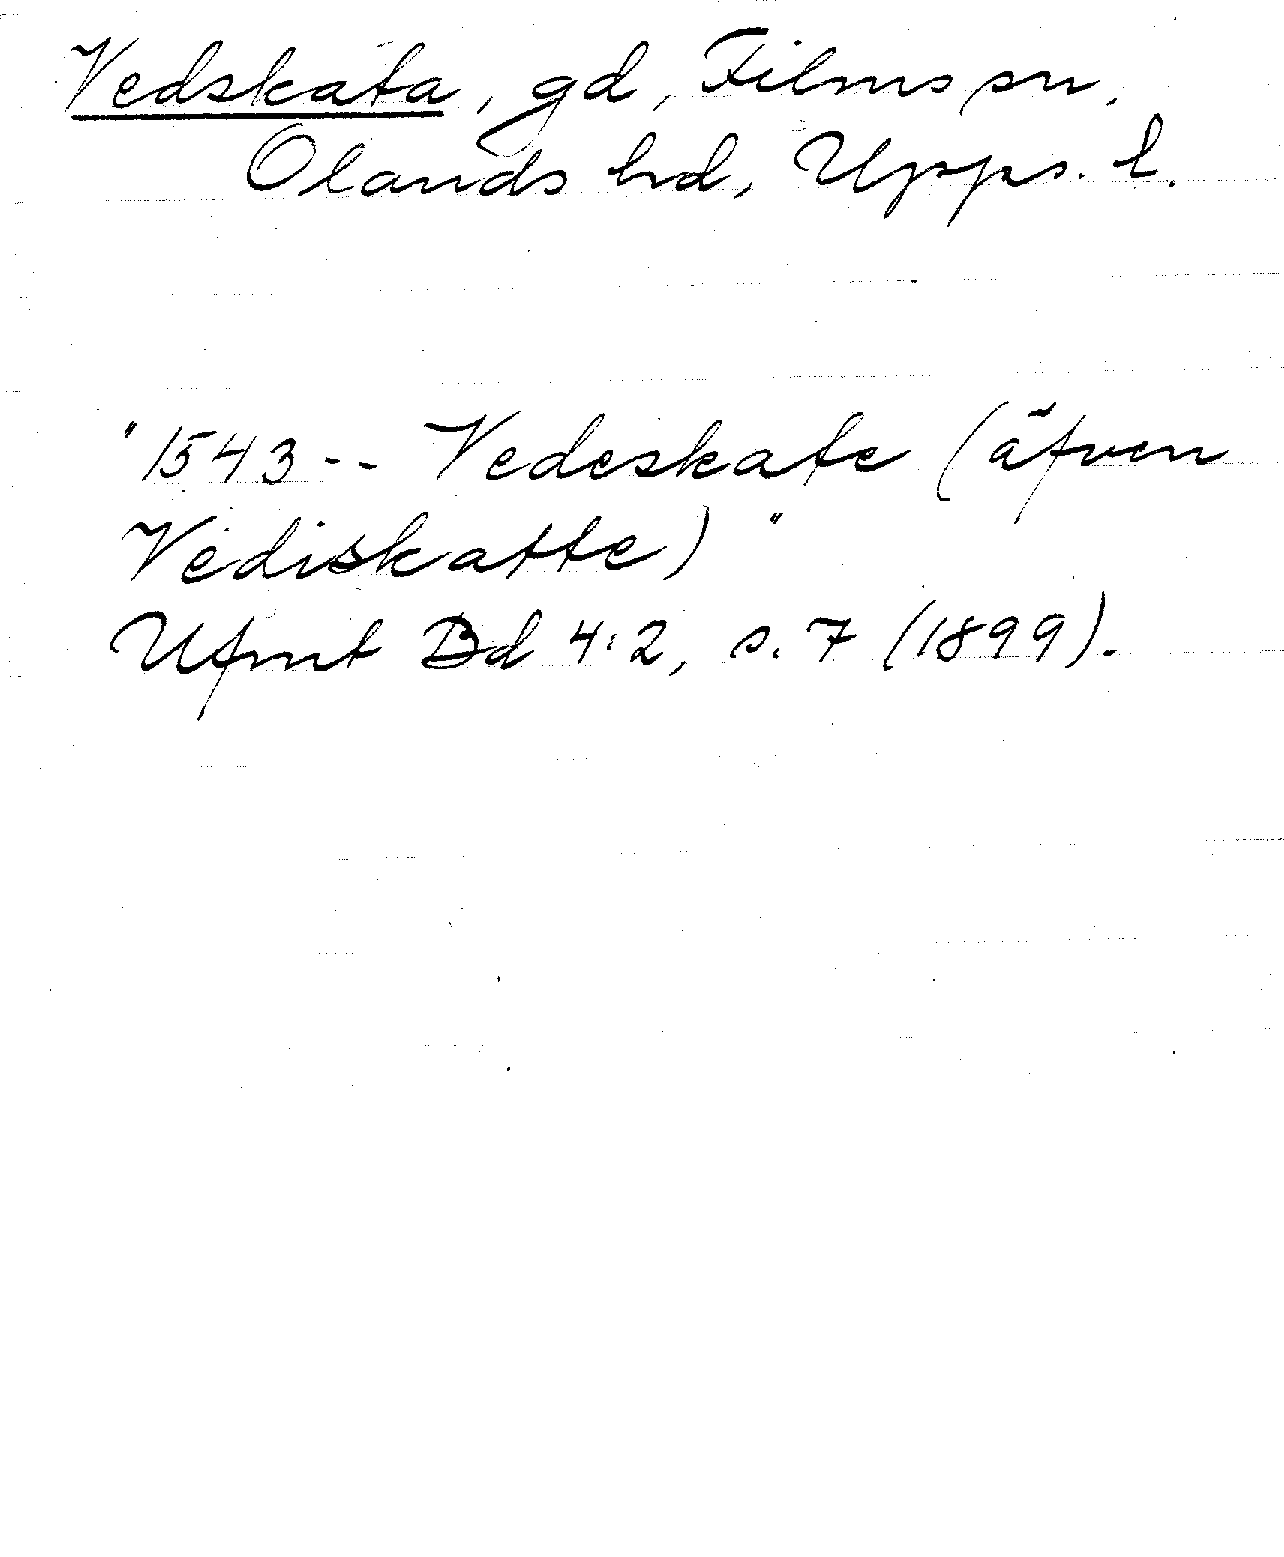 Vedskata, gd, Films sn.
Olands hd, Upps. l.
"1543-- Vedeskate (äfven
Vediskatte)"
Ufmt Bd 4:2, s. 7 (1899).